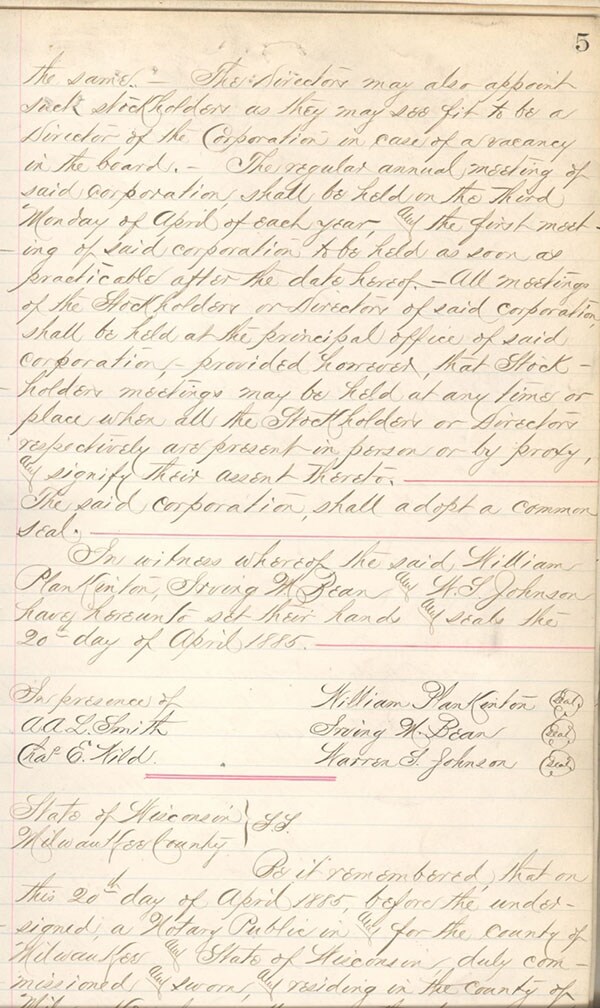 5
the same. — The Directors may also appoint
such stockholders as they may see fit to be a
Director of the Corporation in case of a vacancy
in the board. — The regular annual meeting of
said corporation, shall be held on the Third
Monday of April of each year, and the first meet-
ing of said corporation to be held as soon as
practicable after the date hereof. — All meetings
of the Stockholders or Directors of said corporation,
shall be held at the principal office of said
corporation, — provided however, that Stock-
holders meetings may be held at any time or
place when all the Stockholders or Directors
respectively are present in person or by proxy,
and signify their assent thereto.
The said corporation, shall adopt a common
seal.
In witness whereof the said William
Plankinton, Irving M. Bean and W. S. Johnson
have hereunto set their hands and seals the
20th day of April 1885.
In presence of William Plankinton Seal
A A. L. Smith Irving M. Bean Seal
Chas E. Wild. Warren S. Johnson Seal
State of Wisconsin } S.S.
Milwaukee County
Be it remembered, that on
this 20th day of April 1885, before the under-
signed, a Notary Public in and for the county of
Milwaukee and State of Wisconsin, duly com-
missioned and sworn, and residing in the county of